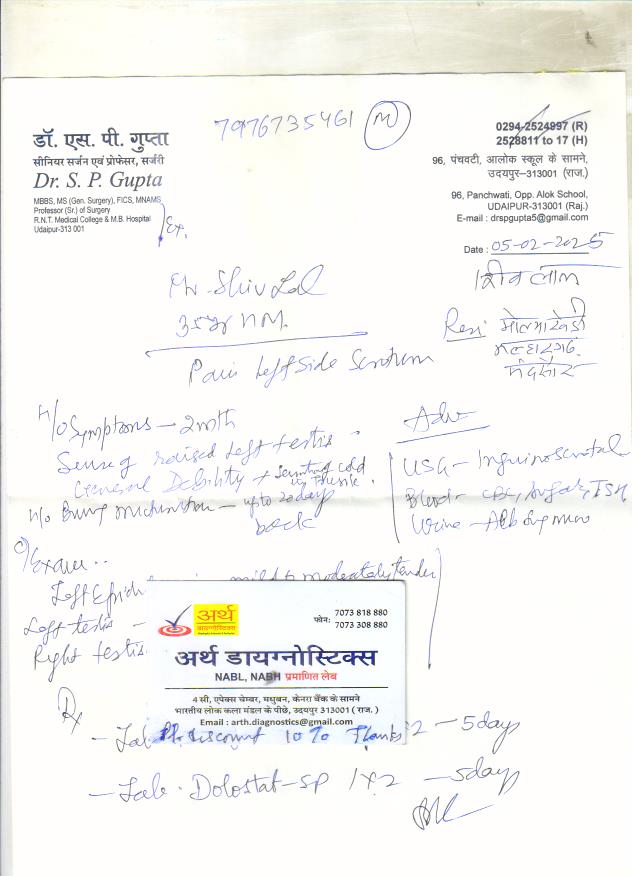 7976735461
डॉ. एस. पी. गुप्ता
सीनियर सर्जन एवं प्रोफेसर, सर्जरी
Dr. S. P. Gupta
MBBS, MS (Gen. Surgery), FICS, MNAMS
Professor (Sr.) of Surgery
R.N.T. Medical College & M.B. Hospital
Udaipur-313 001
Ex.
0294-2524997 (R)
2528811 to 17 (H)
96, पंचवटी, आलोक स्कूल के सामने,
उदयपुर–313001 (राज.)
96, Panchwati, Opp. Alok School,
UDAIPUR-313001 (Raj.)
E-mail : drspgupta5@gmail.com
Date : 05-02-2025
शिव लाल
Shiv Lal
Resi
मल्हारगढ़
मंदसौर
Pain Left Side Scrotum
H/o Symptoms – 2 mth
Sense of raised left testis
General Debility +
H/o Burning micturition – up to 20 days
back
Adv
USG – Inguinoscrotal
Blood – CBC, Sugar, TSH
Urine – Alb Sug Micro
O/Exam..
Left Epidi
mild to moderately tender
Left testis –
Right testis
अर्थ
डायग्नोस्टिक्स
फोन: 7073 818 880
7073 308 880
अर्थ डायग्नोस्टिक्स
NABL, NABH प्रमाणित लेब
4 सी, एपेक्स चेम्बर, मधुबन, केनरा बैंक के सामने
भारतीय लोक कला मंडल के पीछे, उदयपुर 313001 ( राज. )
Email : arth.diagnostics@gmail.com
Pl. discount 10% Thanks
Rx
– Tab
2 – 5 days
– Tab. Dolostat-SP 1x2 – 5 days